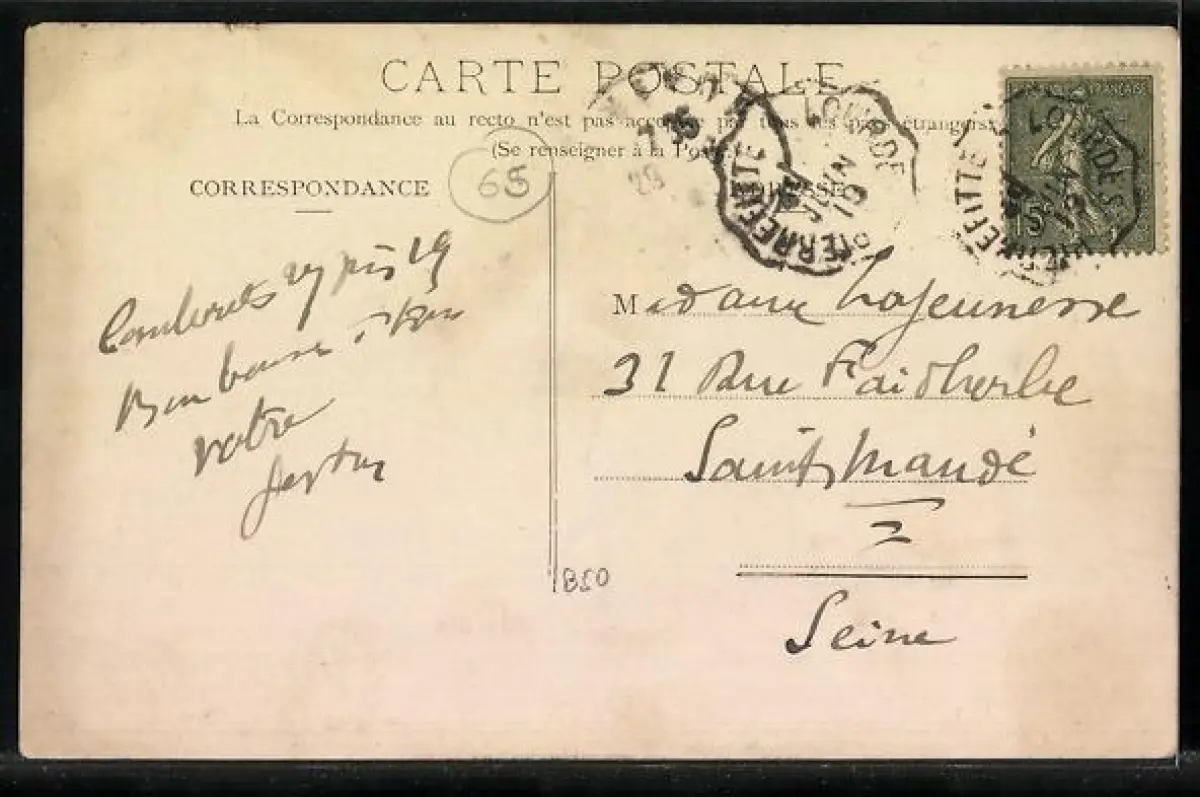 CARTE POSTALE
La Correspondance au recto n'est pas acceptée par tous les pays étrangers
(Se renseigner à la Poste)
CORRESPONDANCE
65
ADRESSE
PIERREFITTE
LOURDES
JUIN
19
PIERREFITTE
LOURDES
15
Cauterets 27 juin 19
votre
Madame Lajeunesse
31 Rue Faidherbe
Saint Mandé
Seine
850